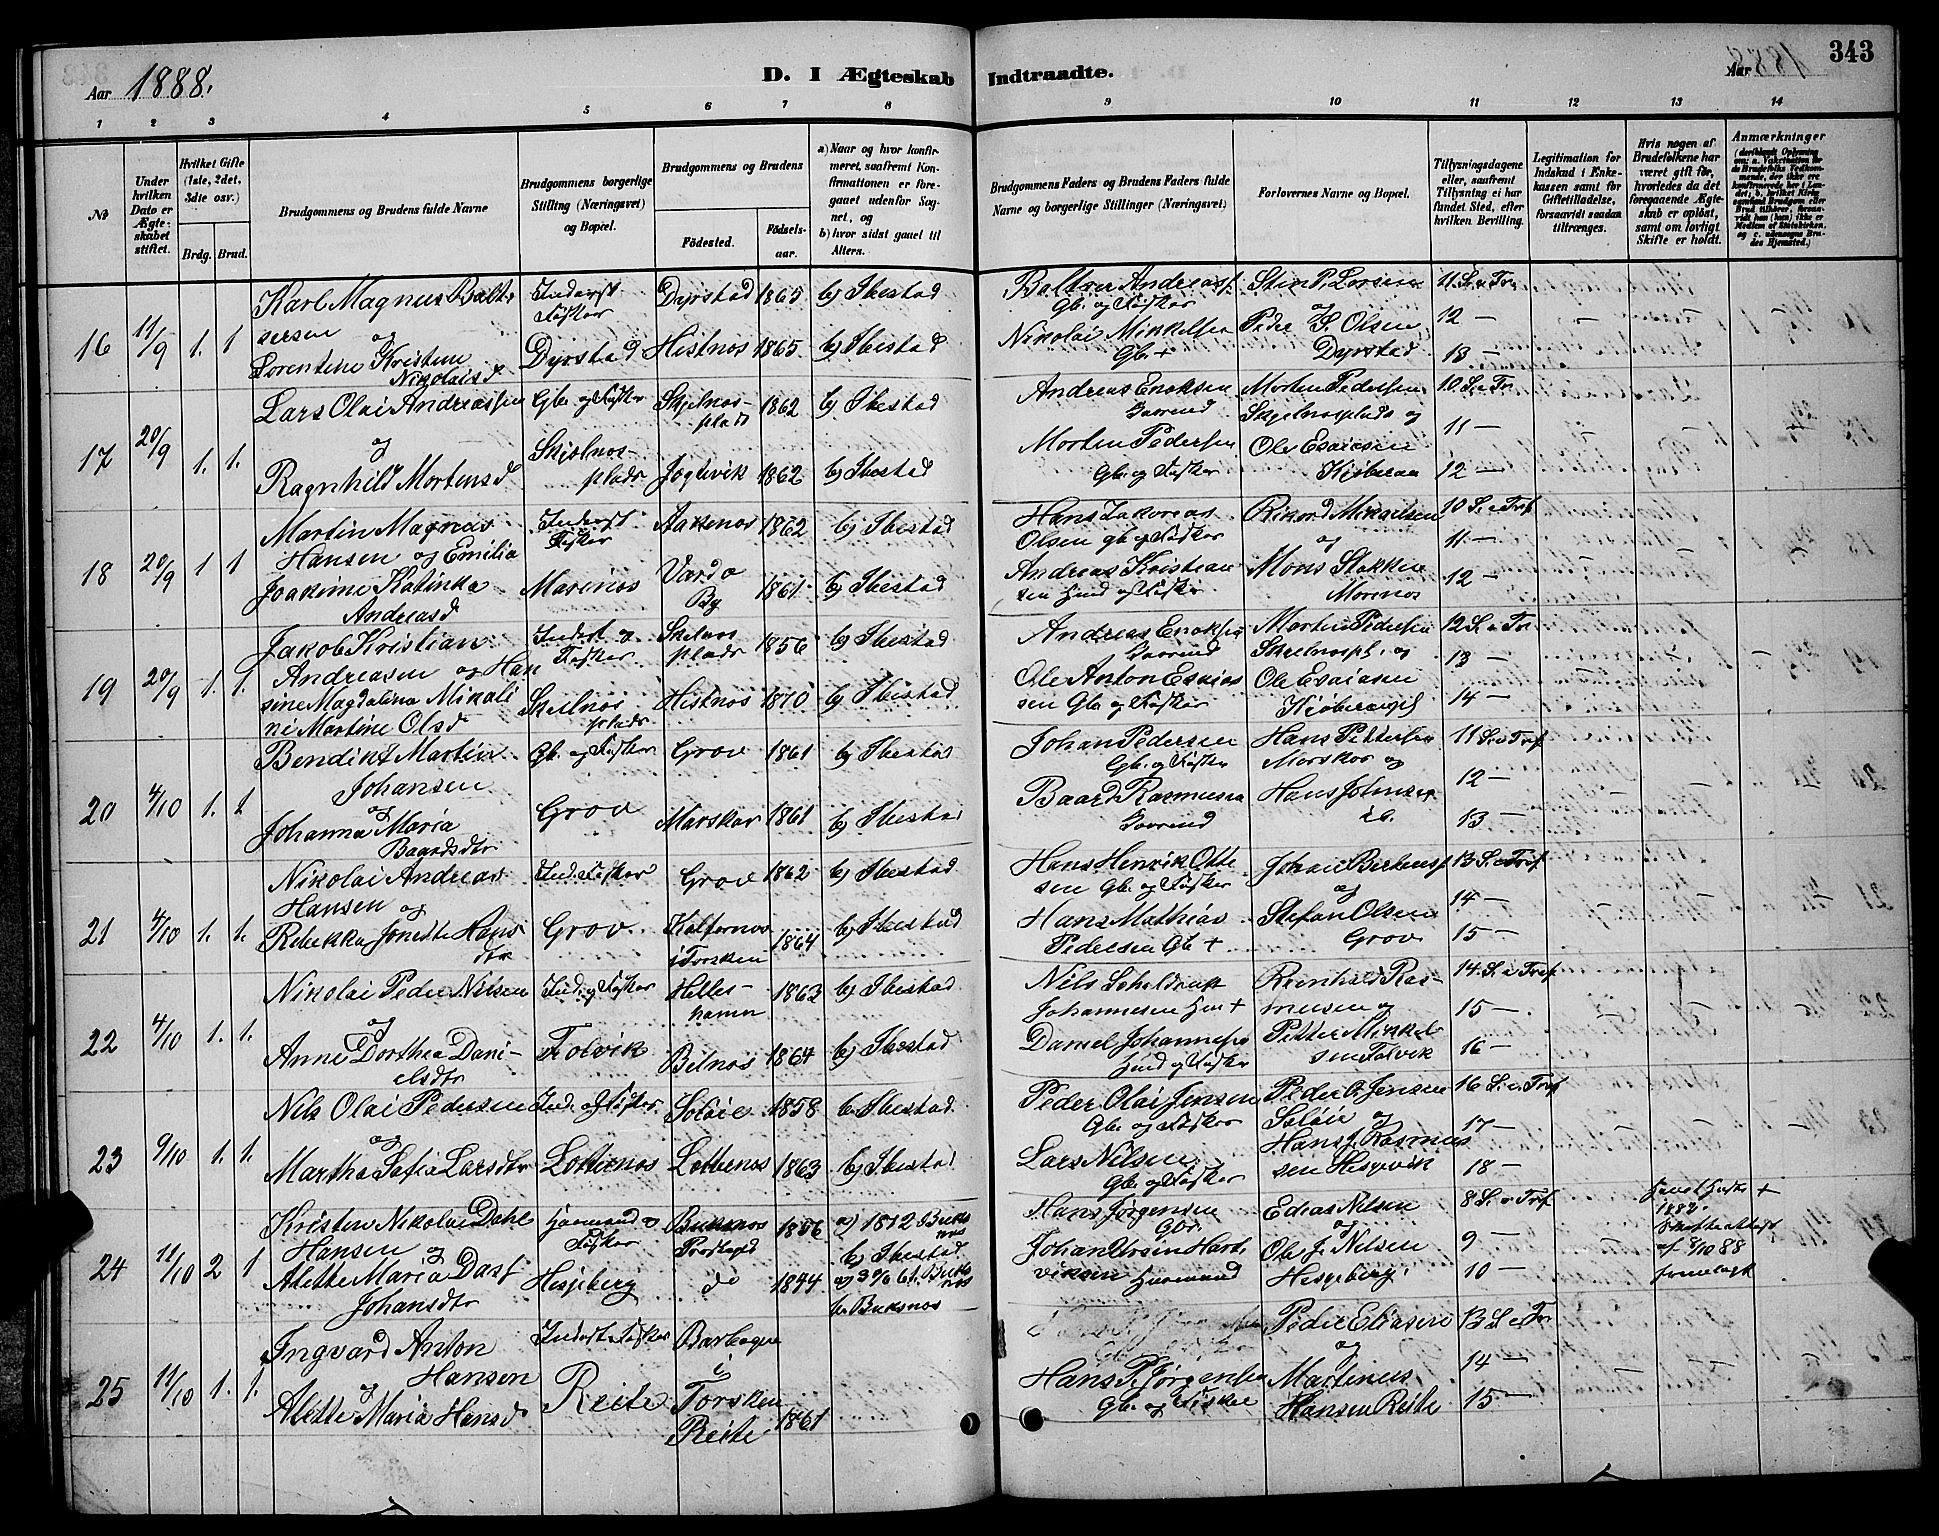 Aar 1888.
D. I Ægteskab Indtraadte.
Aar 1888
343
1 2 3 4 5 6 7 8 9 10 11 12 13 14
№
Under hvilken Dato er Ægteskabet stiftet.
Hvilket Gifte (1ste, 2det, 3die osv.)
Brdg. Brud.
Brudgommens og Brudens fulde Navne
Brudgommens borgerlige Stilling (Næringsvei) og Bopæl.
Brudgommens og Brudens
Fødested.
Fødselsaar.
a) Naar og hvor konfirmeret, saafremt Konfirmationen er foregaaet udenfor Sognet, og
b) hvor sidst gaaet til Alters.
Brudgommens Faders og Brudens Faders fulde Navne og borgerlige Stillinger (Næringsvei)
Forlovernes Navne og Bopæl.
Tillysningsdagene eller, saafremt Tillysning ei har fundet Sted, efter hvilken Bevilling.
Legitimation for Indskud i Enkekassen samt for Giftetilladelse, forsaavidt saadan tiltrænges.
Hvis nogen af Brudefolkene har været gift før, hvorledes da det foregaaende Ægteskab er opløst, samt om lovligt Skifte er holdt.
Anmærkninger
16 11/9 1. 1
Karl Magnus Baltsersen
og
Lorentine Kristine Nikolaisd
Inderst Fisker
Dyrstad
Dyrstad 1865 b) Ibestad
Histnes 1865. b) Ibestad
Baltser Andreass.
Gb. og Fisker
Nikolai Mikkelsen
Gb. +
Sten P. Larsen
og
Peder S. Olsen
Dyrstad
11 S. e Tr.
12 —
13 —
17 20/9 1. 1.
Lars Olai Andreassen
og
Ragnhild Mortensd
Gb. og Fisker
Skjelnesplads
Skjelnesplads 1862 b) Ibestad
1862 b) Ibestad
Andreas Enoksen
Morten Pedersen
Gb. og Fisker
Morten Pedersen
Skjelnesplads og
Ole Esaiasen
10 S. e Tr.
11 —
12 —
18 20/9 1 1
Martin Magnus
Hansen og Emilia
Joakime Katinka
Andreasd
Inderst Fisker
Marenes
Aakenes 1862 b) Ibestad
Vardø By 1861 b) Ibestad
Hans Zakarias
Olsen gb. og Fisker
Andreas Kristiansen
Hmd og Fisker
Rikard Mikaelsen
og
Mons Stokken
Marenes
10 S. e Tref
11 —
12 —
19 20/9 1. 1.
Jakob Kristian
Andreasen og Hansine
Magdalina Mikoline
Martine Olsd
Inderst og Fisker
Skjelnesplads
Skjelnesplads 1856 b) Ibestad
Histnes 1870 b) Ibestad
Andreas Enoksen
Ole Anton Esaiassen
Gb. og Fisker
Morten Pedersen
Skjelnespl. og
Ole Esaiasen
12 S. e Tr.
13 —
14 —
20 4/10 1. 1
Bendikt Martin
Johansen
og
Johanna Maria
Baardsdtr
Gb. og Fisker
Grov
Grov 1861 b) Ibestad
Marskar 1861 b) Ibestad
Johan Pedersen
Gb. og Fisker
Baard Rasmussen
Hans Pettersen
Marskar og
Hans Johnsen
ib.
11 S. e Tref
12 —
13 —
21 4/10 1. 1.
Nikolai Andreas
Hansen og
Rebekka Jonette Hansdtr
Ind. Fisker
Grov
Grov 1862 b) Ibestad
i Torsken 1864 b) Ibestad
Hans Henrik Ottesen
Gb. og Fisker
Hans Mathias
Pedersen Gb. +
Johan Berhens.
og
Stefan Olsen
Grov
13 S. e Tref
14 —
15 —
22 4/10 1. 1.
Nikolai Peder Nilsen
og
Anne Dorthea Danielsdtr
Ind. og Fisker
Folvik
Helleshamn 1863 b) Ibestad
Bilnes 1864 b) Ibestad
Nils Scheldrup
Johannesen Hm +
Daniel Johannesen
Hmd og Fisker
Reinhold Rasmussen
og
Petter Mikkelsen
Folvik
14 S. e Tref
15 —
16 —
23 9/10 1. 1.
Nils Olai Pedersen
og
Martha Sofia Larsdtr
Ind. og Fisker
Lottenes
Soløie 1858 b. Ibestad
Lottenes 1863 b) Ibestad
Peder Olai Jensen
Gb. og Fisker
Lars Nilsen
Gb. og Fisker
Peder O. Jensen
Soløie og
Hans J. Rasmussen
Hesjevik
16 S. e Tref
17 —
18 —
24 11/10 2 1
Kristen Nikolai Dahl
Hansen og
Alette Maria Dass
Johansdtr
Huusmand og Fisker
Hesjeberg
Buksnes Prestegd 1856
do 1844
a) 1872 Buksnes
b) Ibestad
a) 30/6 61. Buksnes
b. Buksnes
Hans Jørgensen
Gbr.
Johan Ursin Hartviksen
Huusmand
Edias Nilsen
og
Ole J. Nilsen
Hesjeberg.
8 S. e Tref
9 —
10 —
1882.
Skifteattest
af 8/10 88
fremlagt
25 11/10 1. 1.
Ingvard Anton
Hansen
og
Alette Maria Hansd
Inderst og Fisker
Reite
i
Torsken
Reite. 1861
Hans P. Jørgensen
Gb. og Fisker
Peder Eliasen
og
Martinus
Hansen Reite
13 S. e Tr.
14 —
15 —